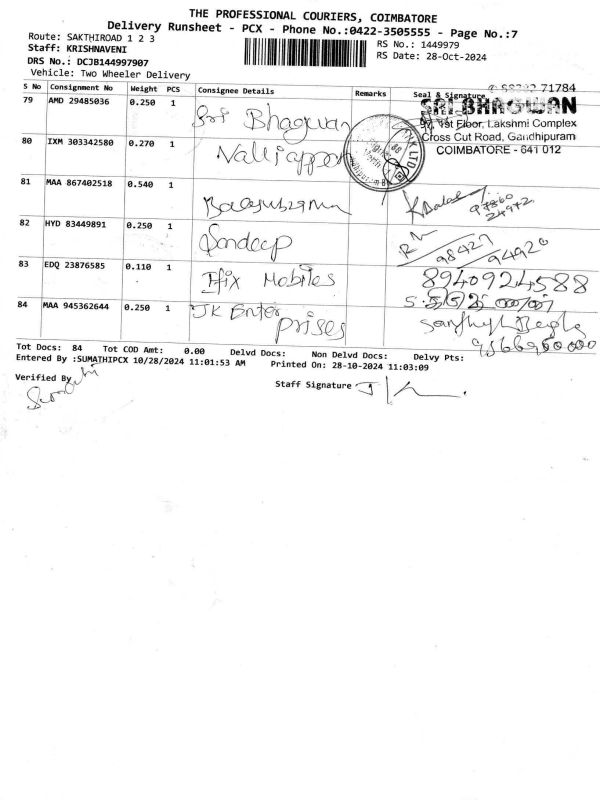 THE PROFESSIONAL COURIERS, COIMBATORE
Delivery Runsheet - PCX - Phone No.:0422-3505555 - Page No.:7
Route: SAKTHIROAD 1 2 3
RS No.: 1449979
Staff: KRISHNAVENI
RS Date: 28-Oct-2024
DRS No.: DCJB144997907
Vehicle: Two Wheeler Delivery
S No Consignment No Weight PCS Consignee Details Remarks Seal & Signature
71784
79 AMD 29485036 0.250 1 Sri Bhagwan SRI BHAGWAN
1st Floor, Lakshmi Complex
Cross Cut Road, Gandhipuram
COIMBATORE - 641 012
80 IXM 303342580 0.270 1 Nalliappan
81 MAA 867402518 0.540 1 Balasubramani
24972
82 HYD 83449891 0.250 1 Sandeep
98427
94920
83 EDQ 23876585 0.110 1 Ifix Mobiles 8940924588
84 MAA 945362644 0.250 1 JK Enter
prises
Tot Docs: 84 Tot COD Amt: 0.00 Delvd Docs: Non Delvd Docs: Delvy Pts:
Entered By :SUMATHIPCX 10/28/2024 11:01:53 AM Printed On: 28-10-2024 11:03:09
Verified By
Staff Signature